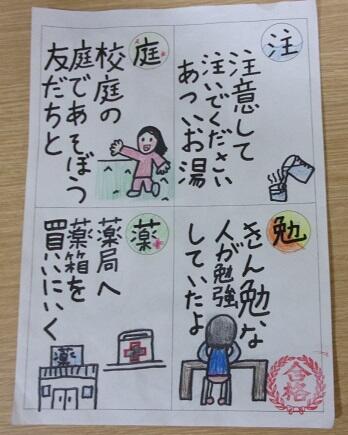 注
注意して
注いでください
あついお湯
庭
校庭の
庭であそぼう
友だちと
勉
きん勉な
人が勉強
していたよ
合格
薬
薬局へ
薬箱を
買いにいく
薬